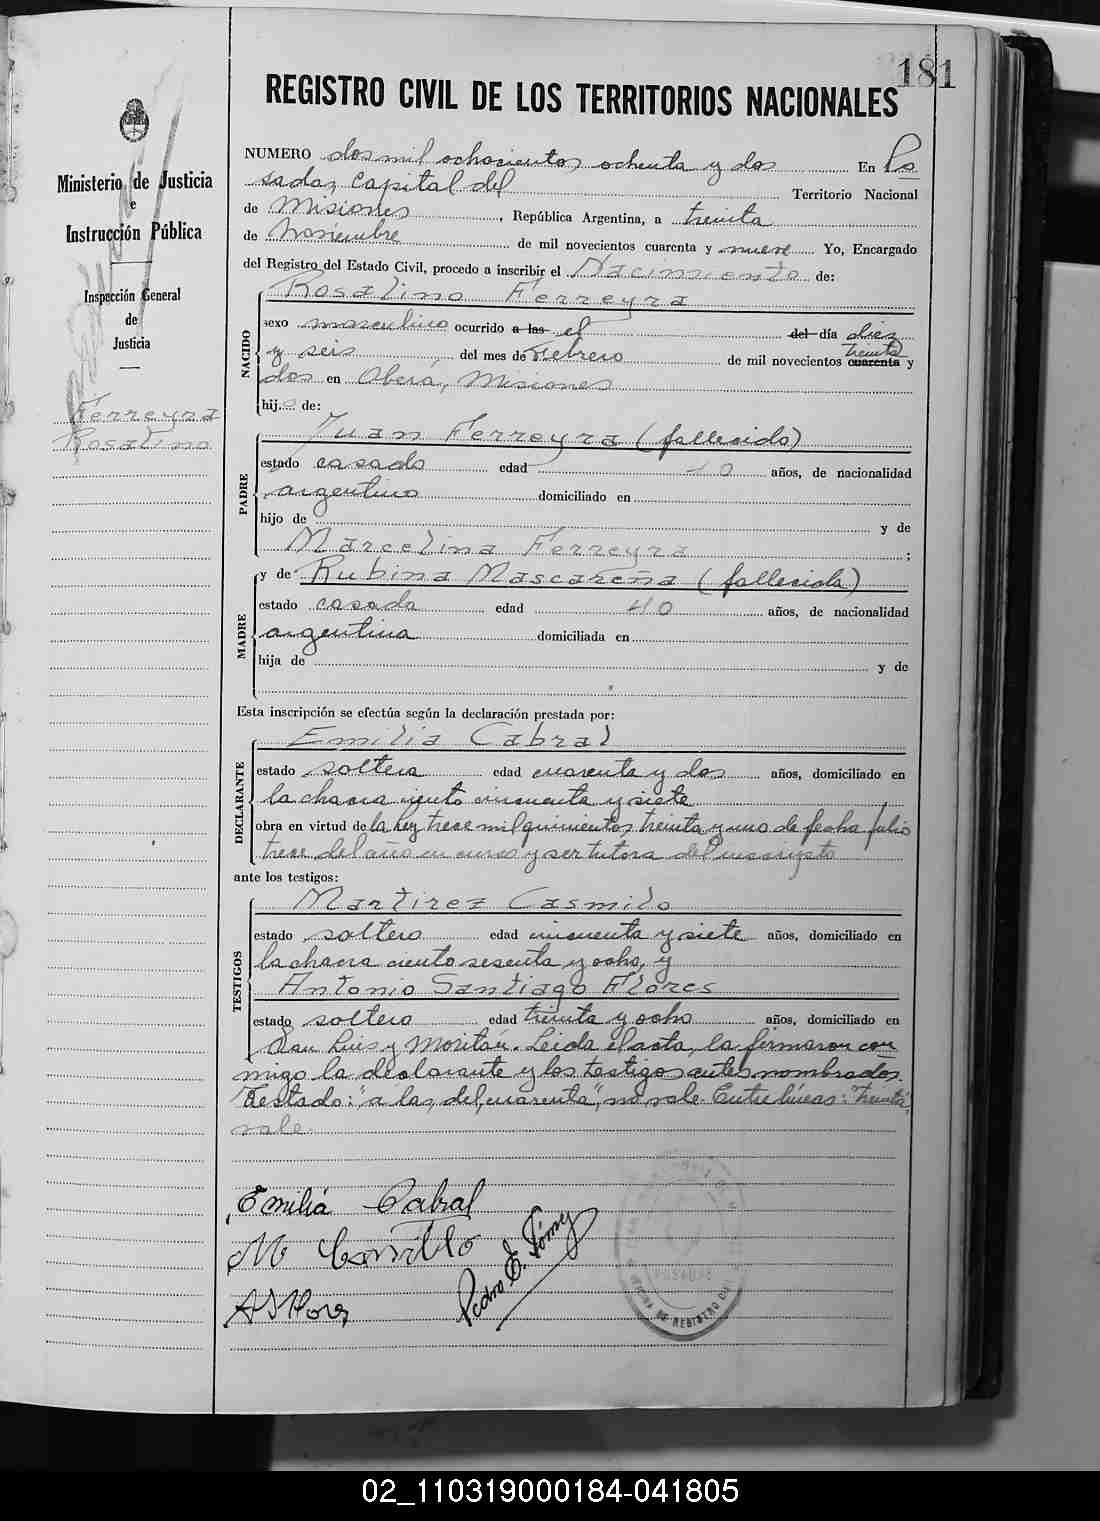 181
REGISTRO CIVIL DE LOS TERRITORIOS NACIONALES
Ministerio de Justicia
e
Instrucción Pública
Inspección General
de
Justicia
Ferreyra
Rosalino
NUMERO dos mil ochocientos ochenta y dos En Po
sadas capital del Territorio Nacional
de Misiones, República Argentina, a treinta
de Noviembre de mil novecientos cuarenta y nueve Yo, Encargado
del Registro del Estado Civil, procedo a inscribir el Nacimiento de:
Rosalino Ferreyra
NACIDO
sexo masculino ocurrido a las el del día diez
y seis del mes de Febrero de mil novecientos cuarenta treinta y
dos en Oberá, Misiones
hijo de:
PADRE
Juan Ferreyra (fallecido)
estado casado edad 40 años, de nacionalidad
argentino domiciliado en
hijo de y de
Marcelina Ferreyra;
MADRE
y de Rubina Mascareña (fallecida)
estado casada edad 40 años, de nacionalidad
argentina domiciliada en
hija de y de
Esta inscripción se efectúa según la declaración prestada por:
DECLARANTE
Emilia Cabral
estado soltera edad cuarenta y dos años, domiciliado en
la chacra ciento cincuenta y siete
obra en virtud de la ley trece mil quinientos treinta y uno de fecha julio
trece del año en curso y ser tutora del inscripto
ante los testigos:
TESTIGOS
Martirez Casmilo
estado soltero edad cincuenta y siete años, domiciliado en
la chacra ciento sesenta y ocho, y
Antonio Santiago Flores
estado soltero edad treinta y ocho años, domiciliado en
San Luis y Moritán. Leida el acta, la firmaron con
migo la declarante y los testigos antes nombrados.
Testado: "a las, del, cuarenta", no vale. Entre líneas: "treinta",
vale.
Emilia Cabral
M
Pedro E. Gómez
OFICINA DE REGISTRO CIVIL
POSADAS
02_110319000184-041805